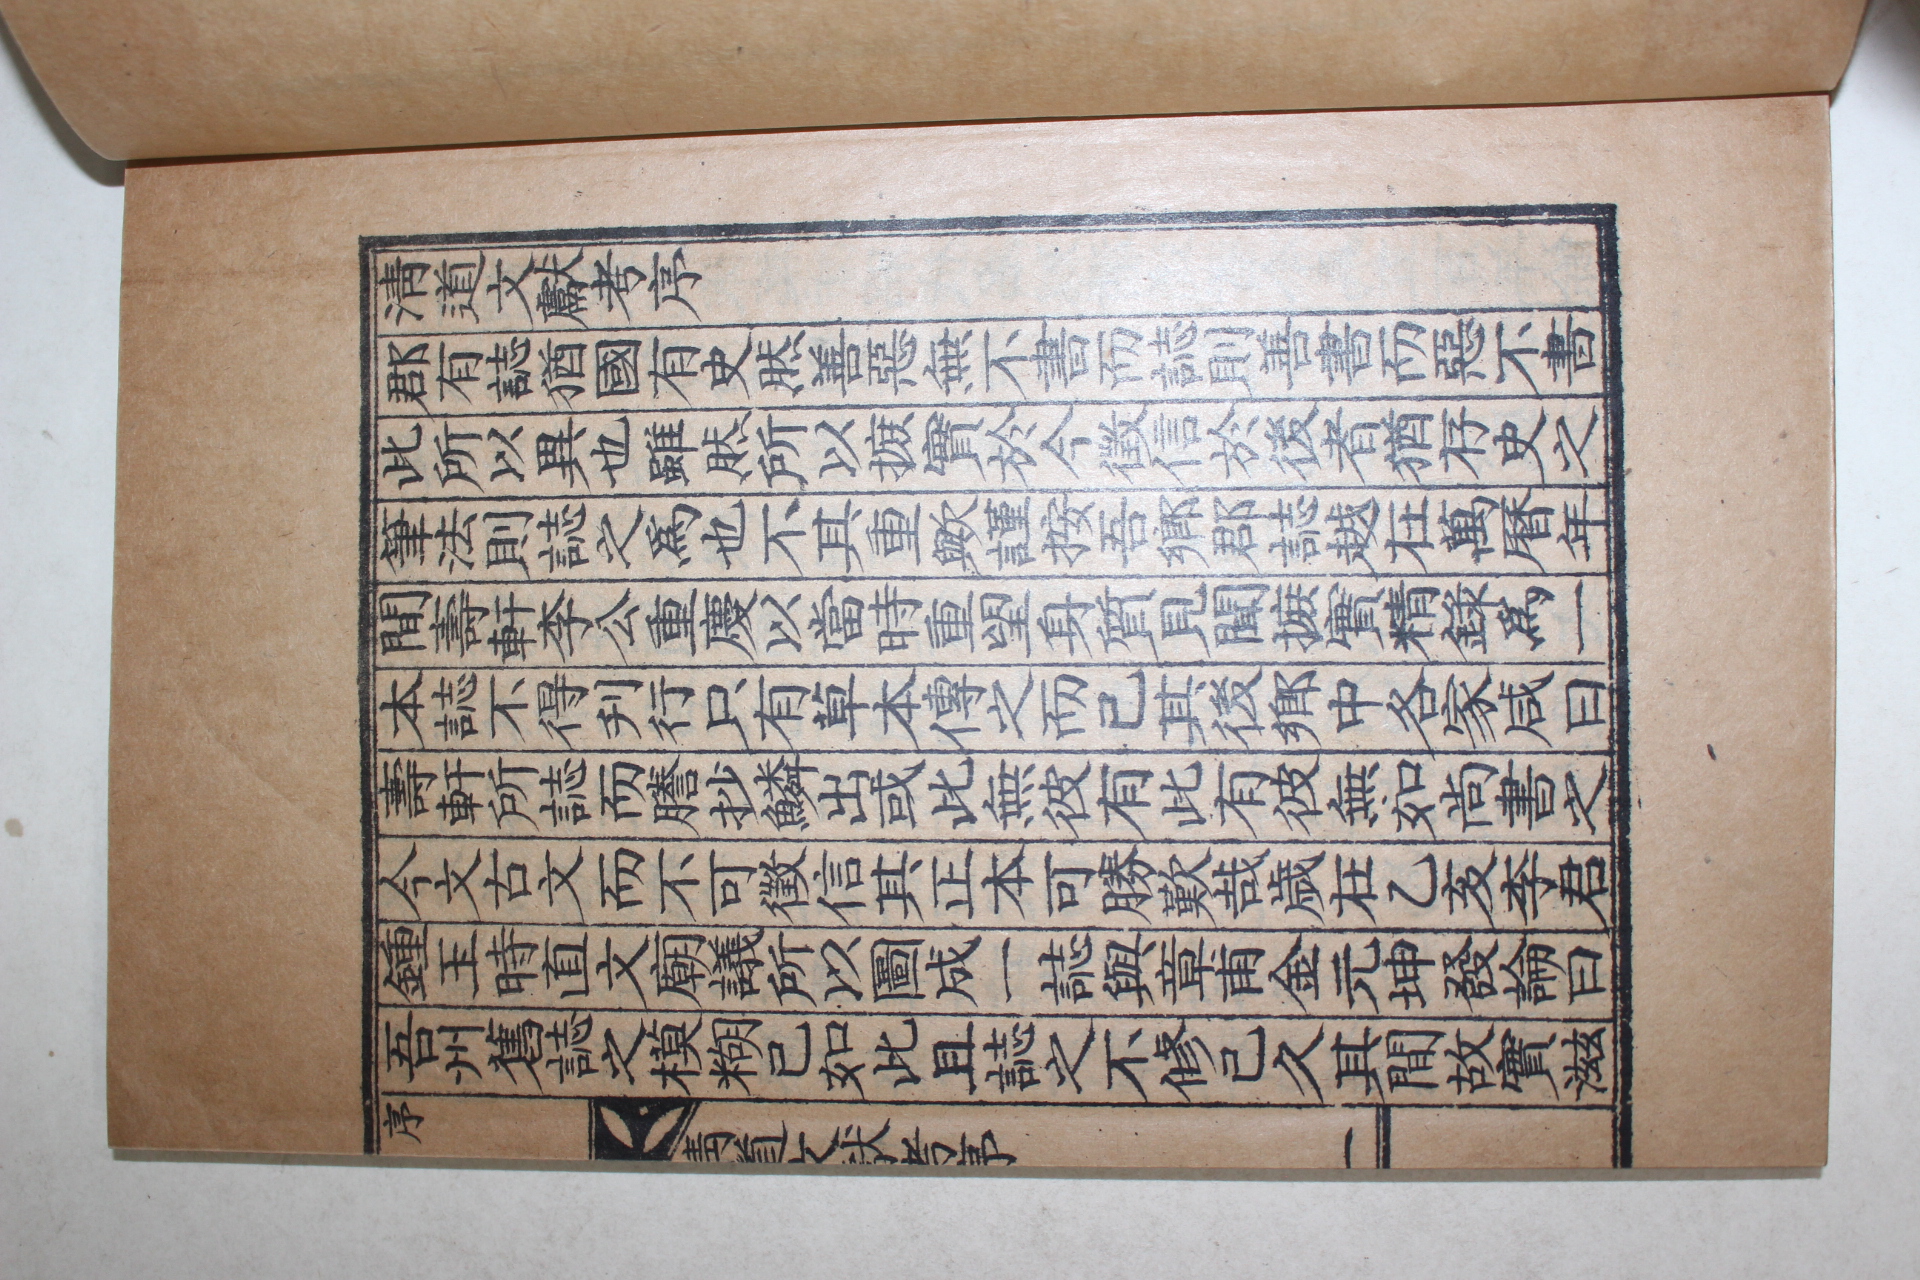 淸道文獻考序
郡有誌猶國有史然善惡無不書而誌則善書而惡不書
此所以異也雖然所以摭實於今徵信於後者猶存史之
筆法則誌之爲也不其重歟謹按吾鄕郡誌越在萬曆年
間壽軒李公重慶以當時重望身質見聞摭實精錄爲一
本誌不得刋行只有草本傳之而已其後鄕中各家咸曰
壽軒所誌而謄抄鱗出或此無彼有此有彼無如尙書之
今文古文而不可徵信其正本可勝歎哉歲在乙亥李君
鍾玉時直文廟議所以圖成一誌與章甫金元坤發論曰
吾州舊誌之模糊已如此且誌之不修已久其間故實滋
序
淸道文獻考序
一